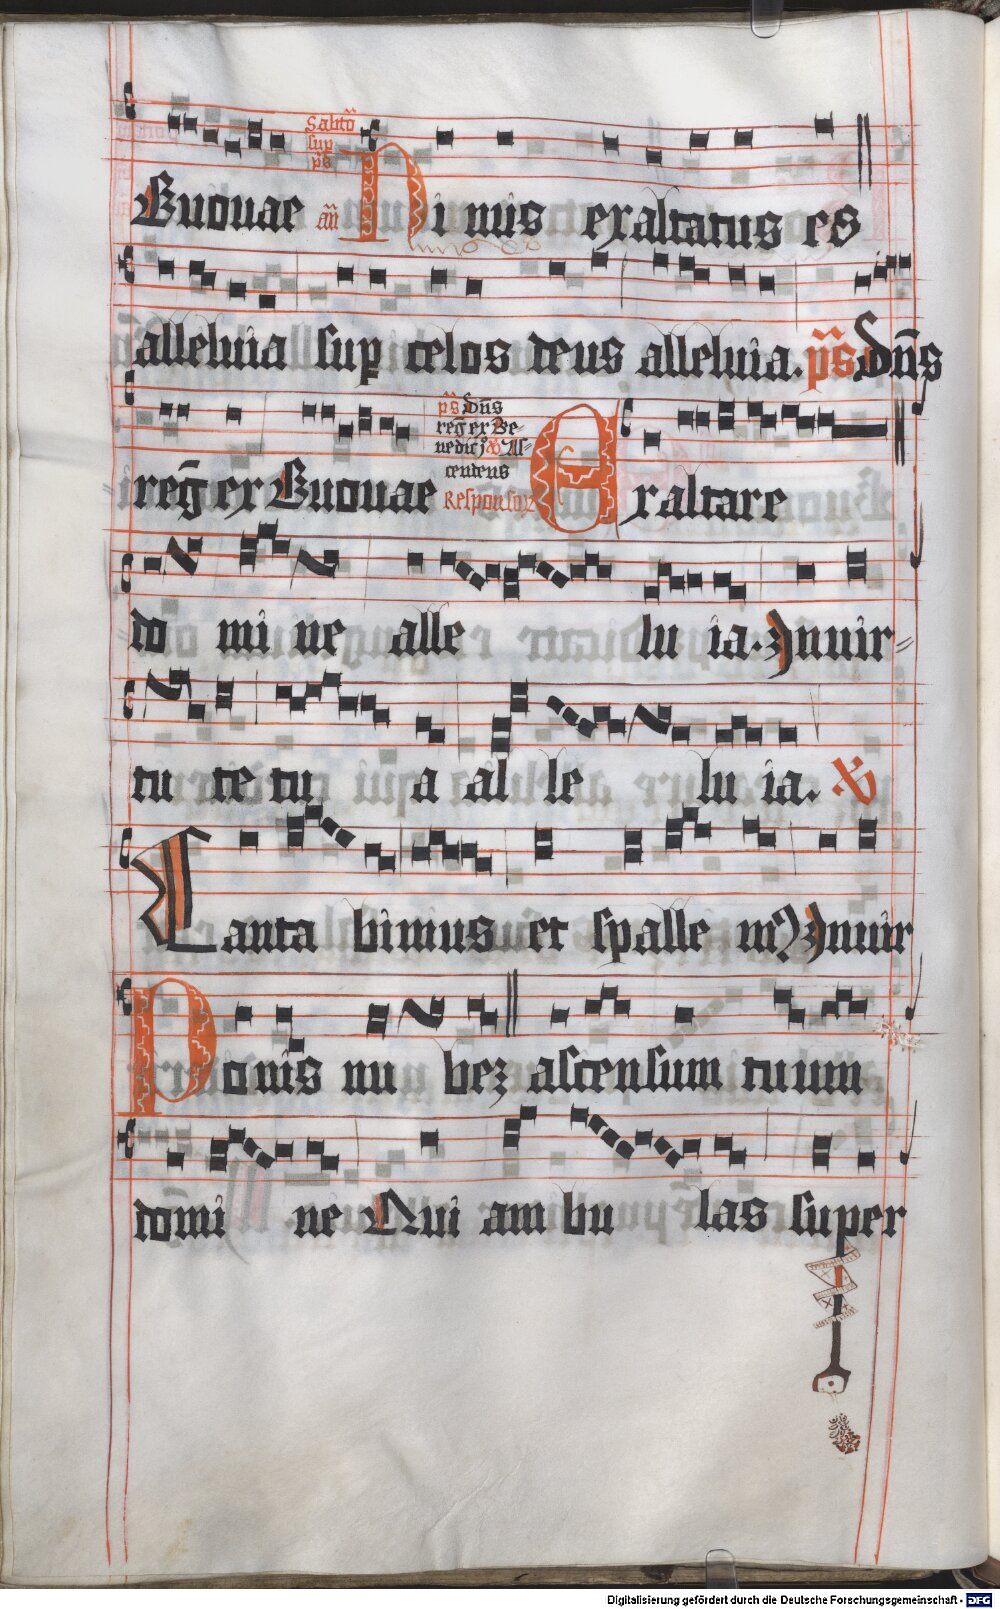 Sabto
sup
ps
Euouae añ Nimis exaltatus es
alleluia sup celos deus alleluia. ps Dñs
ps Dñs
reg̃ ex Be-
nedic & As-
cendens
reg̃ ex Euouae Responsor Exaltare
do mi ne alle lu ia. Inuir-
tu te tu a al le lu ia. V
Canta bimus et spalle m Inuir
Ponis nu bez ascensum tuum
domi ne Qui am bu las super
Digitalisierung gefördert durch die Deutsche Forschungsgemeinschaft - DFG